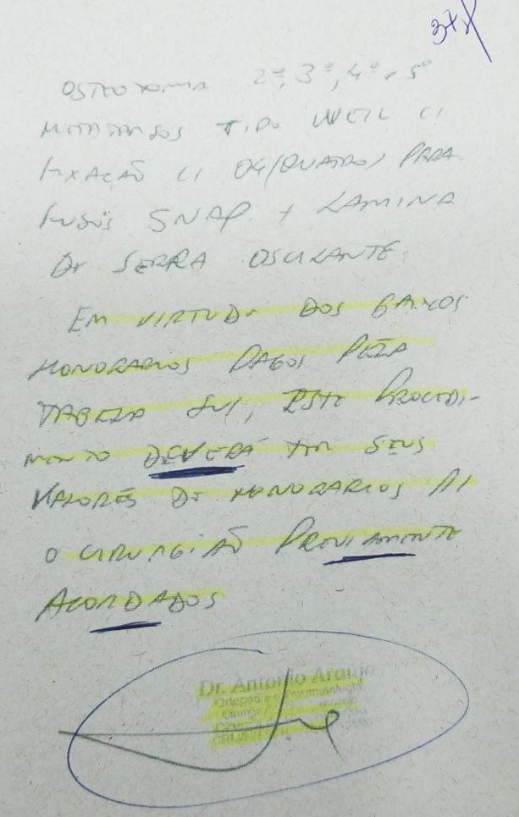 378
OSTEOTOMIA 2º, 3º, 4º, 5º
METATARSOS TIPO WEIL C/
FIXAÇÃO C/ 04 (QUATRO) PARA
FUSOS SNAP + LAMINA
DE SERRA OSCILANTE.
EM VIRTUDE DOS BAIXOS
HONORARIOS PAGOS PELA
TABELA SUS, ESTE PROCEDI-
MENTO DEVERÁ TER SEUS
VALORES DE HONORARIOS P/
O CIRURGIÃO PREVIAMENTE
ACORDADOS
Dr. Antonio Araujo
Ortopedia e Traumatologia